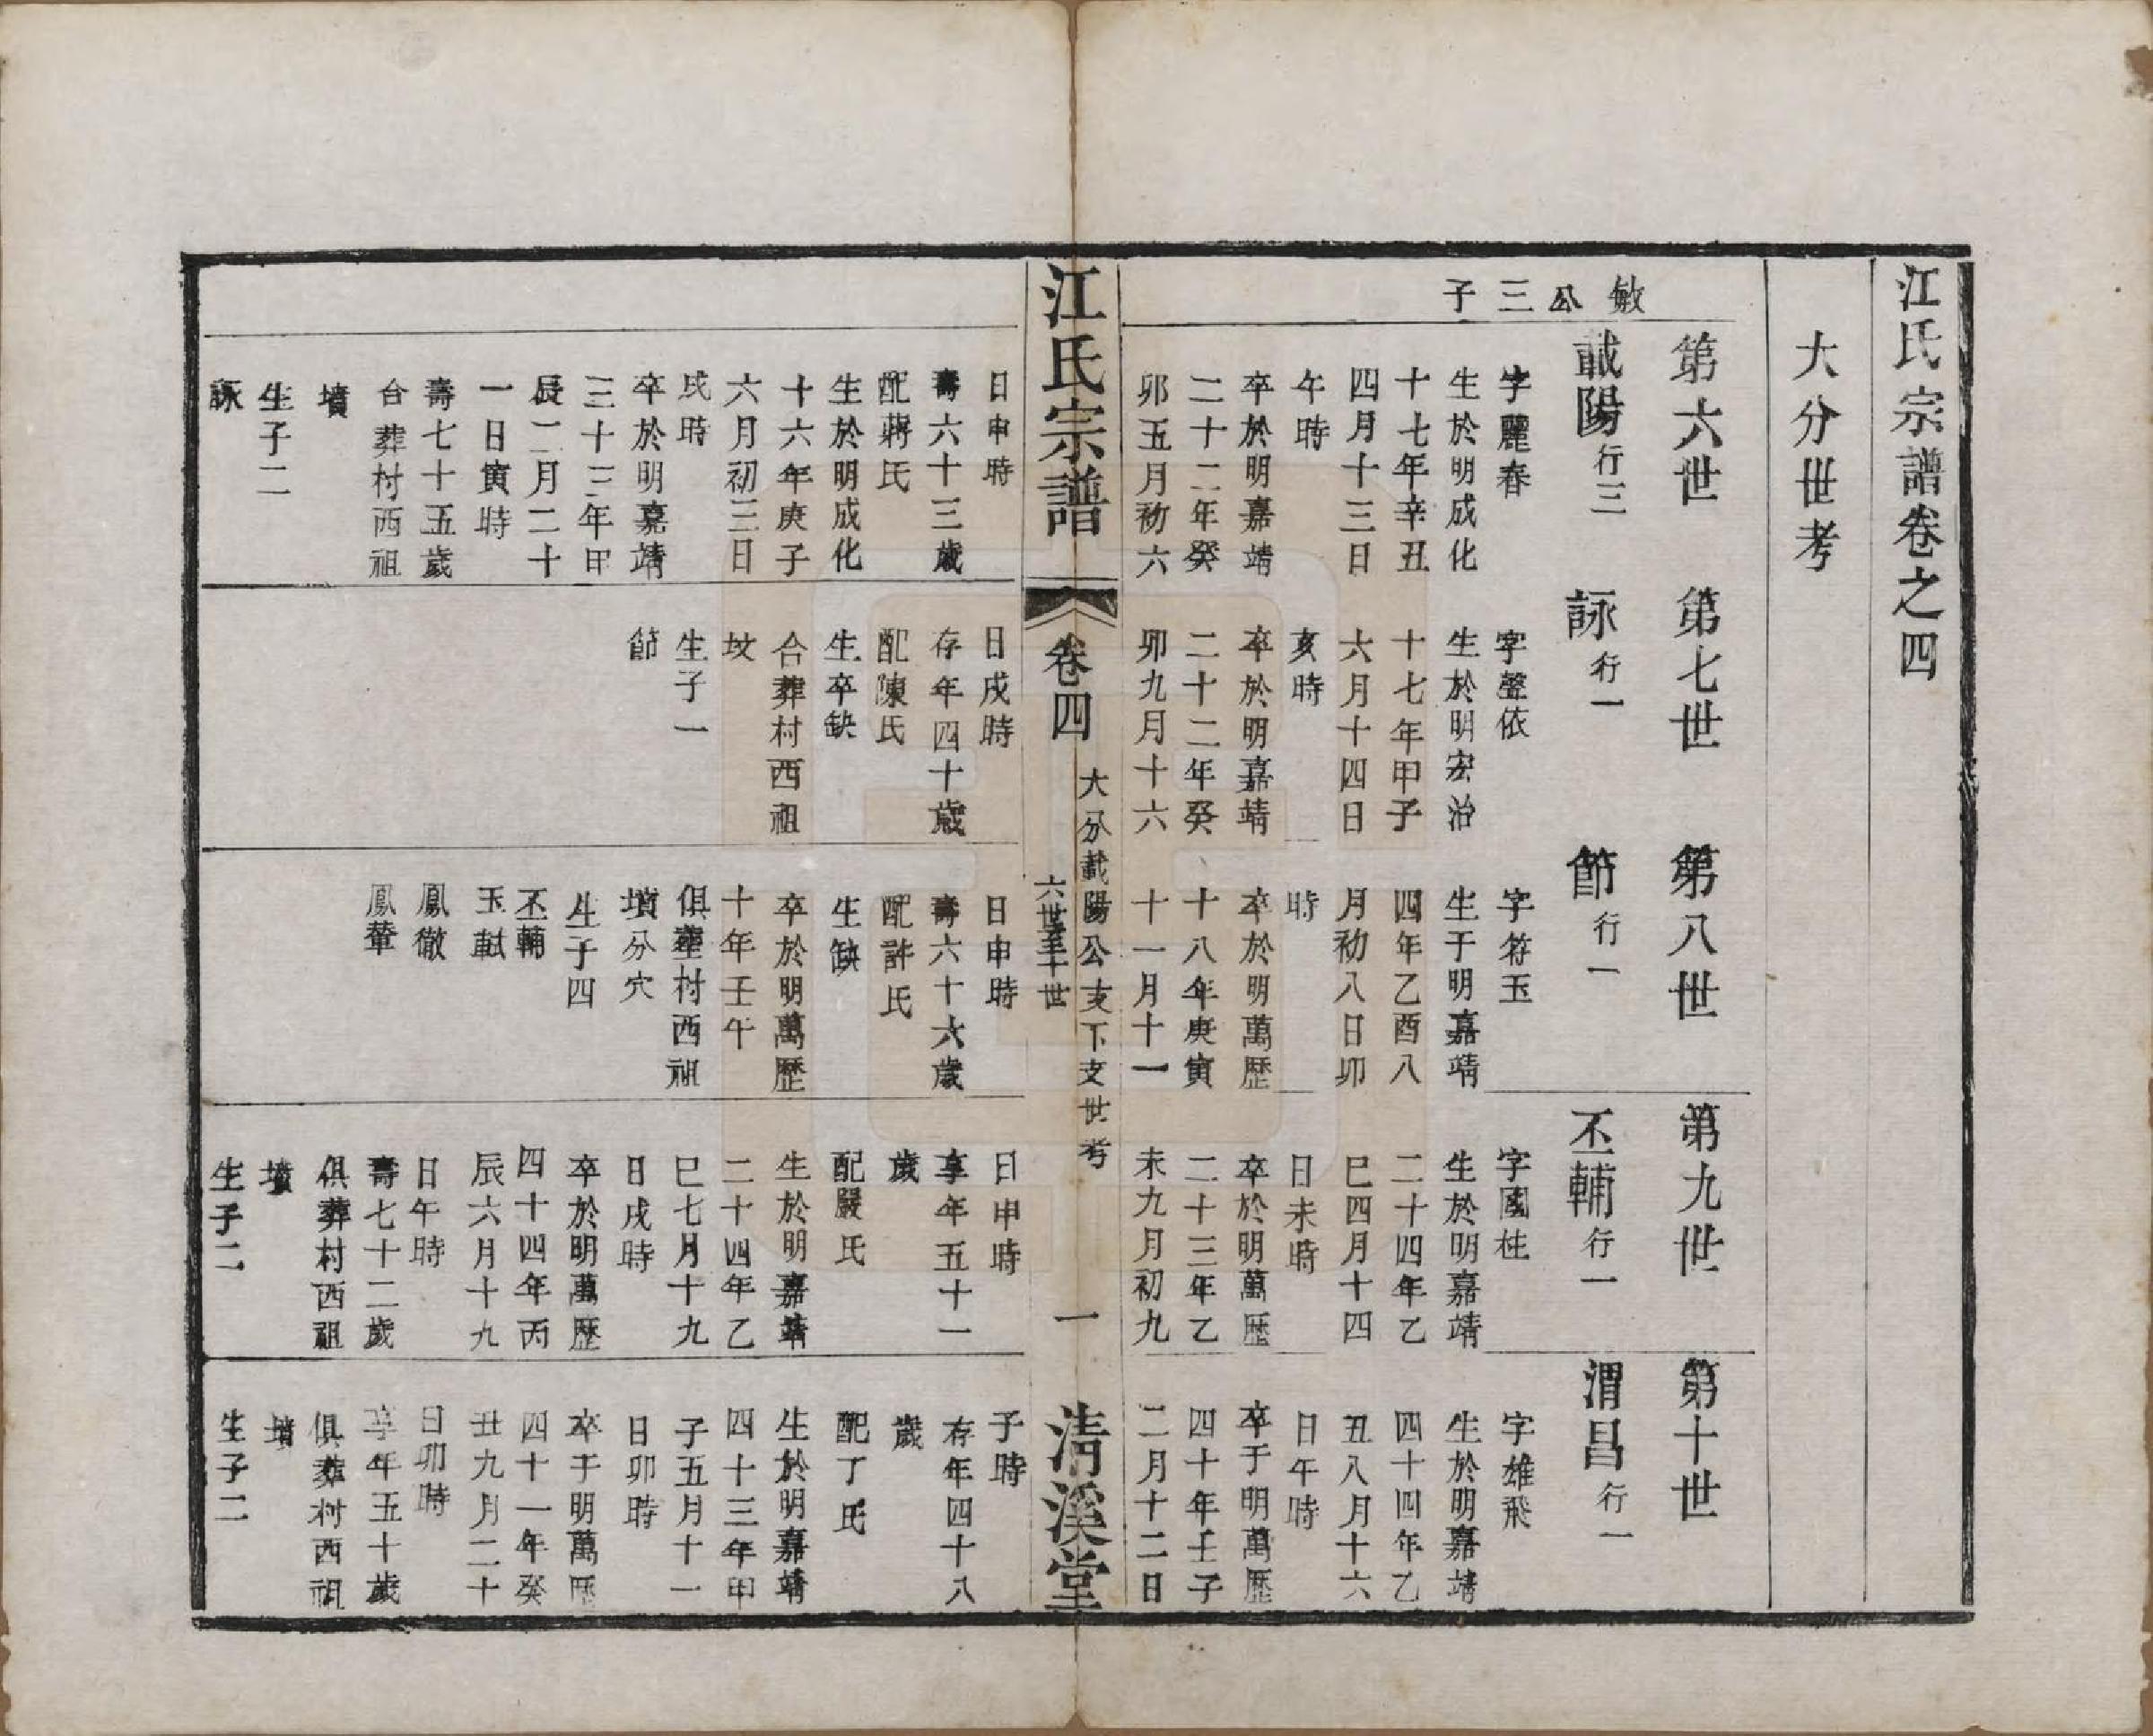 江氏宗譜卷之四
大分世考
敏公三子
第六世
載陽行三
字麗春
生於明成化
十七年辛丑
四月十三日
午時
卒於明嘉靖
二十二年癸
卯五月初六
日申時
壽六十三歲
配蔣氏
生於明成化
十六年庚子
六月初三日
戌時
卒於明嘉靖
三十三年甲
辰二月二十
一日寅時
壽七十五歲
合葬村西祖
墳
生子二
詠
第七世
詠行一
字聲依
生於明宏治
十七年甲子
六月十四日
亥時
卒於明嘉靖
二十二年癸
卯九月十六
日戌時
存年四十歲
配陳氏
生卒缺
合葬村西祖
坟
生子一
節
第八世
節行一
字符玉
生于明嘉靖
四年乙酉八
月初八日卯
時
卒於明萬歷
十八年庚寅
十一月十一
日申時
壽六十六歲
配許氏
生缺
卒於明萬歷
十年壬午
俱葬村西祖
墳分穴
生子四
丕輔
玉軾
鳳徹
鳳輦
第九世
丕輔行一
字國柱
生於明嘉靖
二十四年乙
巳四月十四
日未時
卒於明萬歷
二十三年乙
未九月初九
日申時
享年五十一
歲
配嚴氏
生於明嘉靖
二十四年乙
巳七月十九
日戌時
卒於明萬歷
四十四年丙
辰六月十九
日午時
壽七十二歲
俱葬村西祖
墳
生子二
第十世
渭昌行一
字雄飛
生於明嘉靖
四十四年乙
丑八月十六
日午時
卒于明萬歷
四十年壬子
二月十二日
子時
存年四十八
歲
配丁氏
生於明嘉靖
四十三年甲
子五月十一
日卯時
卒于明萬歷
四十一年癸
丑九月二十
日卯時
享年五十歲
俱葬村西祖
墳
生子二
江氏宗譜
卷四
大分載陽公支下支世考
六世至十世
一
清溪堂